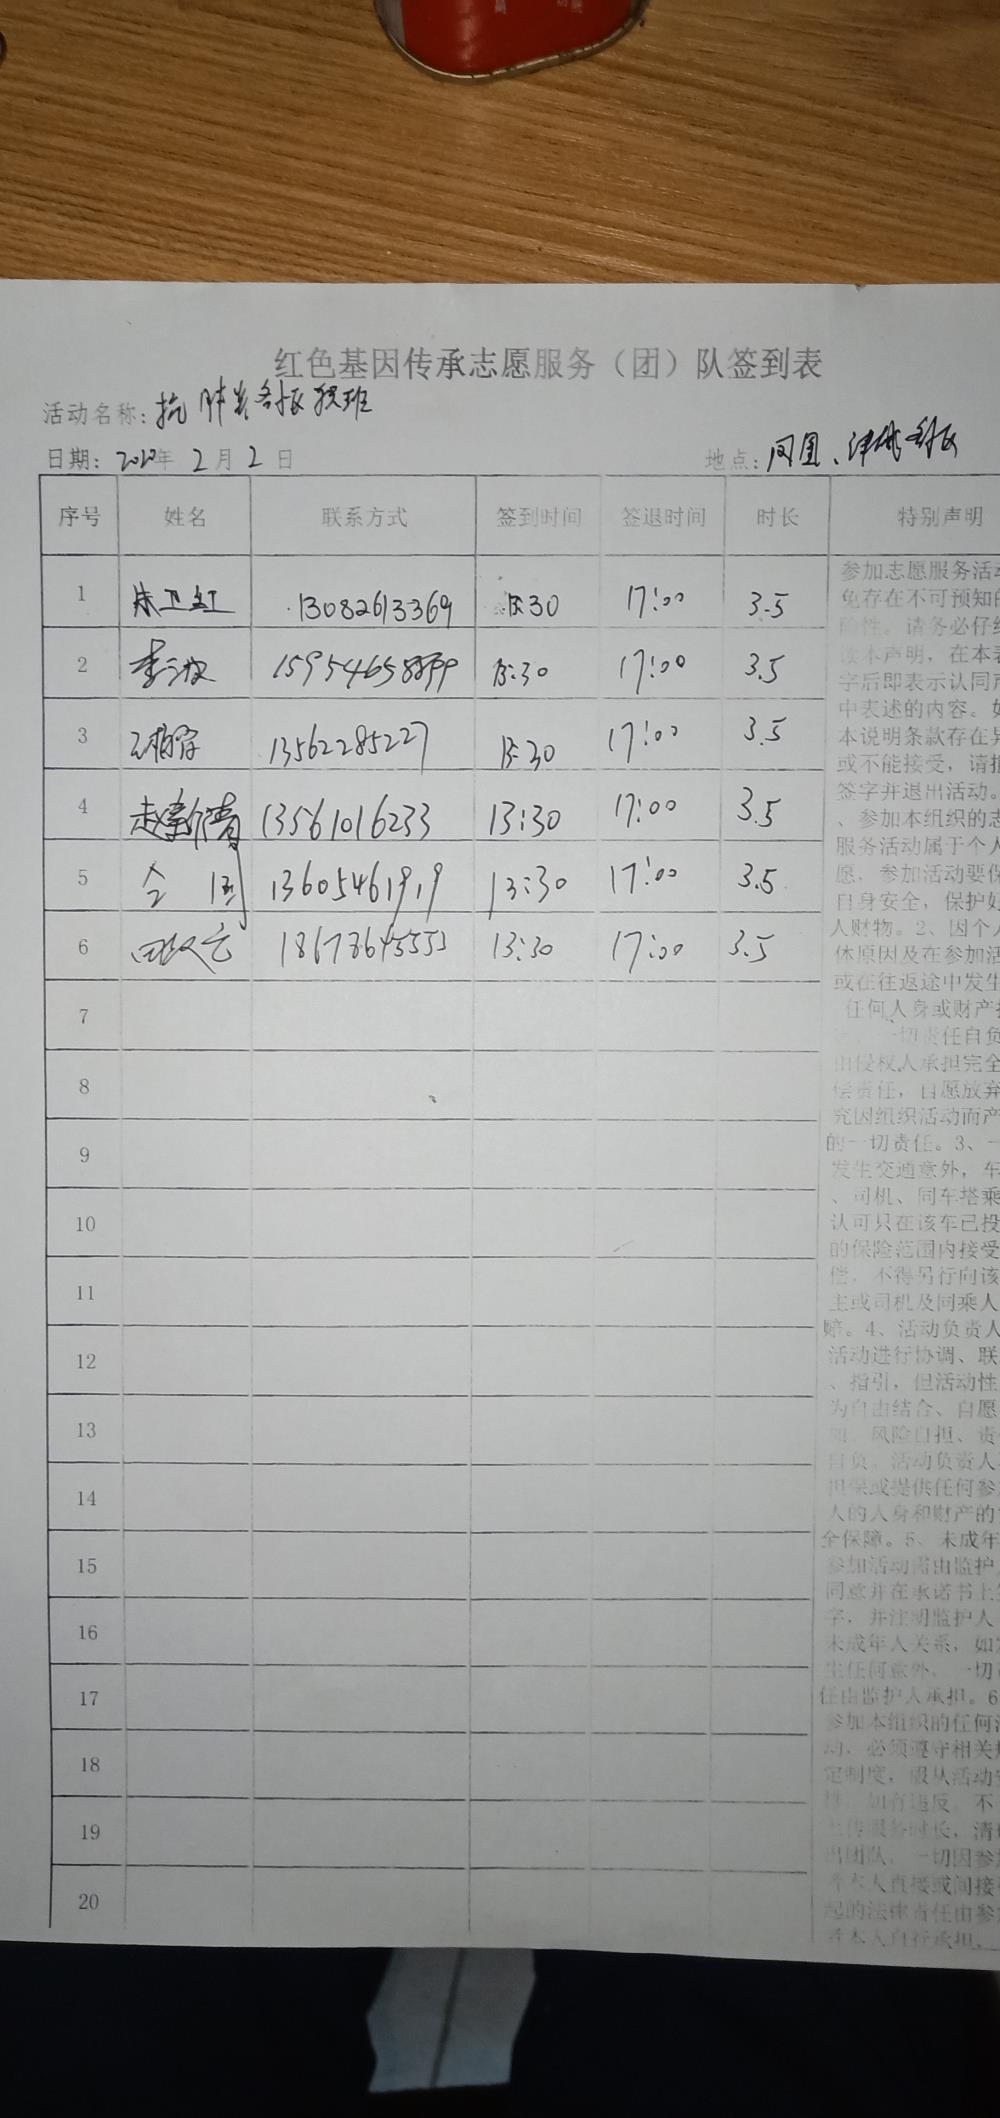 红色基因传承志愿服务（团）队签到表
活动名称：抗肺炎 值班
日期：2020年 2月 2日 地点：凤凰、
序号 姓名 联系方式 签到时间 签退时间 时长 特别声明
1 朱卫红 13082613369 13:30 17:00 3.5
2 李 15954658899 13:30 17:00 3.5
3 13562285227 13:30 17:00 3.5
4 赵 倩 13561016233 13:30 17:00 3.5
5 13605461919 13:30 17:00 3.5
6 田 18678645553 13:30 17:00 3.5
7
8
9
10
11
12
13
14
15
16
17
18
19
20
参加志愿服务活
免存在不可预知的
险性。请务必仔细
读本声明，在本表
字后即表示认同
中表述的内容。如
本说明条款存在异
或不能接受，请
签字并退出活动。
、参加本组织的志
服务活动属于个人
愿，参加活动要保
自身安全，保护好
人财物。2、因个人
体原因及在参加活
或在往返途中发生
任何人身或财产
一切责任自负
由侵权人承担完全
偿责任，自愿放弃
究因组织活动而产
的一切责任。3、
发生交通意外，车
、司机、同车搭乘
认可只在该车已投
的保险范围内接受
偿，不得另行向该
主或司机及同乘人
赔。4、活动负责人
活动进行协调、联
、指引，但活动性
为自由结合、自愿
加、风险自担、责
自负。活动负责人
担保或提供任何参
人的人身和财产的
全保障。5、未成年
参加活动需由监护
同意并在承诺书上
字，并注明监护人
未成年人关系，如
生任何意外，一切
任由监护人承担。6
参加本组织的任何
动，必须遵守相关
定制度，服从活动
排，如有违反，不
上传服务时长，清
出团队。一切因参
者本人直接或间接
起的法律责任由参
者本人自行承担。